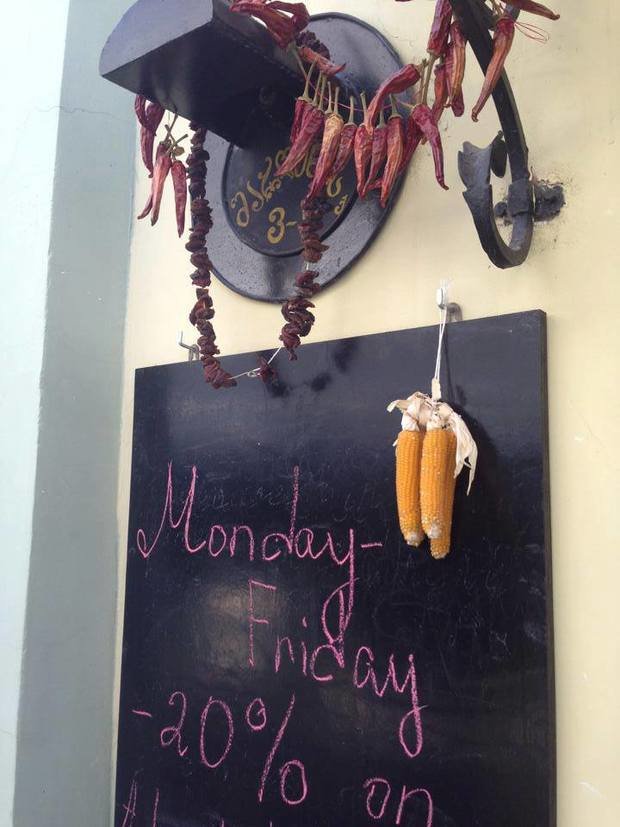 3-
Monday-
Friday
-20% on